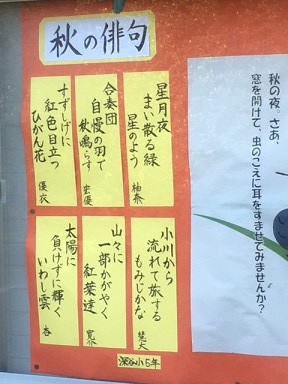 秋の俳句
星月夜
まい散る緑
星のよう
柚奈
合奏団
自慢の羽で
秋鳴らす
宏優
すずしげに
紅色目立つ
ひがん花
優衣
小川から
流れて旅する
もみじかな
慧大
山々に
一部かがやく
紅葉達
寛弥
太陽に
負けずに輝く
いわし雲
杏
深谷小5年
秋の夜 さあ、
窓を開けて、虫のこえに耳をすませてみませんか?